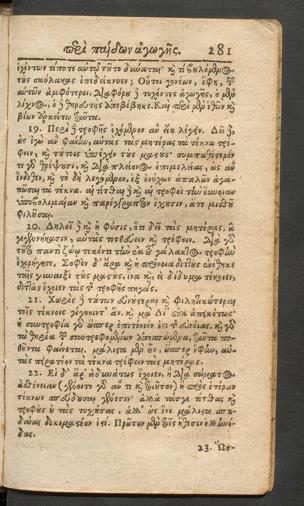 περὶ παίδων ἀγωγῆς. 281
ἐχόντων τί ποτε αὐτὸ τοῦτο δύναται· καὶ τί βουλόμενος
τοὺς σκύλακας ἐπιδείκνυεν; Οὗτοι γονέων, ἔφη, τῶν
αὐτῶν ἀμφότεροι. Διαφόρου τυχόντες ἀγωγῆς, ὁ μὲν
λίχνος, ὁ θηρευτὴς ἀποβέβηκε. Καὶ περὶ μὲν ἐθῶν καὶ
βίων ἀρκείτω ταῦτα.
19. Περὶ τροφῆς ἐχόμενον ἂν εἴη λέγειν. Δεῖ
ὡς ἐγὼ ἂν φαίην, αὐτὰς τὰς μητέρας τὰ τέκνα τρέ-
φειν, καὶ τούτοις ὑπέχειν τοὺς μαστούς· συμπαθέστερόν
τε γὰρ θρέψουσι, καὶ διὰ πλείονος ἐπιμελείας, ὡς ἂν
ἔνδοθεν, καὶ τὸ δὴ λεγόμενον, ἐξ ὀνύχων ἁπαλῶν ἀγα-
πῶσαι τὰ τέκνα. αἱ τίτθαι καὶ αἱ τροφοὶ τὴν εὔνοιαν
ὑποβολιμαίαν καὶ παρέγγραπτον ἔχουσιν, ἅτε μισθοῦ
φιλοῦσαι.
20. Δηλοῖ καὶ ἡ φύσις, ὅτι δεῖ τὰς μητέρας, ἃ
γεγεννήκασιν, αὐτὰς τιτθεύειν καὶ τρέφειν. Διὰ γὰρ
τοῦτο παντὶ ζώῳ τεκόντι τὴν ἐκ τοῦ γάλακτος τροφὴν
ἐχορήγησε. Σοφὸν δ' ἄρα καὶ ἡ πρόνοια διττοὺς ἐνέθηκε
ταῖς γυναιξὶ τοὺς μαστούς, ἵνα κἂν εἰ δίδυμα τέκοιεν,
διττὰς ἔχοιεν τὰς τῆς τροφῆς πηγάς.
21. Χωρὶς τούτων εὐνούστεραι καὶ φιλητικώτεραι
τοῖς τέκνοις γίγνοιντ' ἄν. καὶ μὰ Δί' οὐκ ἀπεικότως·
ἡ συντροφία γὰρ ὥσπερ ἐπιτόνιόν ἐστι τῆς εὐνοίας. καὶ γὰρ
τὰ θηρία τῶν συντρεφομένων ἀποσπώμενα, ταῦτα πο-
θοῦντα φαίνεται. μάλιστα μὲν οὖν, ὅπερ ἔφην, αὐ-
τὰς πειρατέον τὰ τέκνα τρέφειν τὰς μητέρας.
22. Εἰ δ' ἄρ' ἀδυνάτως ἔχοιεν, ἢ διὰ σώματος
ἀσθένειαν (γένοιτο γὰρ ἄν τι καὶ τοιοῦτον) ἢ πρὸς ἑτέρων
τέκνων σπεύδουσαι γένεσιν· ἀλλὰ τάσγε τίτθας καὶ
τροφοὺς οὐ τὰς τυχούσας, ἀλλ' ὡς ἔνι μάλιστα σπου-
δαίας δοκιμαστέον ἐστί. Πρῶτον μὲν τοῖς ἤθεσιν ἑλληνί-
δας.
23. Ὥσ-